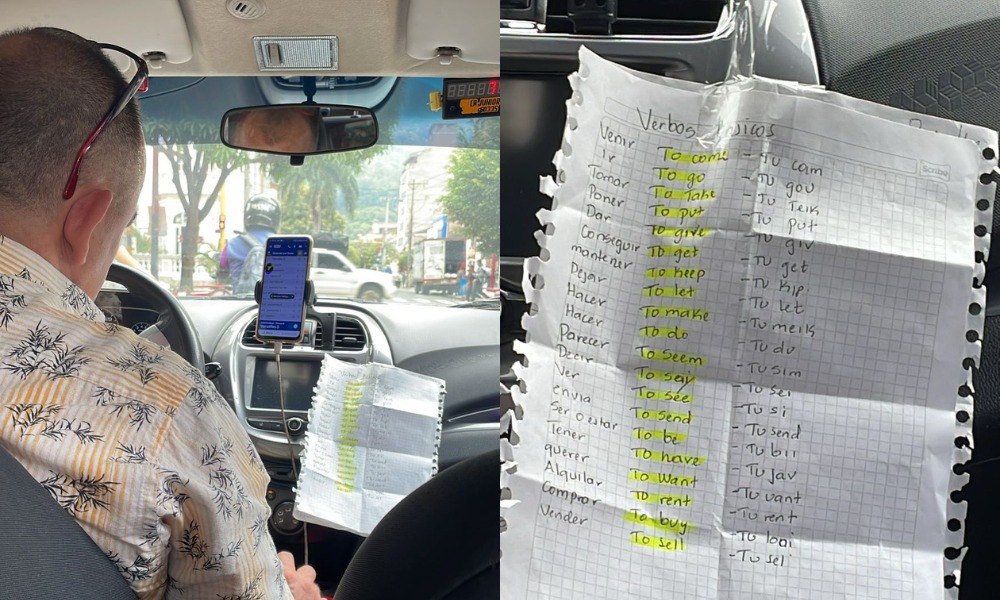 Verbos
Scribe
Venir To come - Tu cam
Ir To go - Tu gou
Tomar To take - Tu Teik
Poner To put - Tu put
Dar To give - Tu giv
Conseguir To get - Tu get
mantener To keep - Tu Kip
Dejar To let - Tu let
Hacer To make - Tu meik
Hacer To do - Tu du
Parecer To seem - Tu sim
Decir To say - Tu sei
Ver To see - Tu si
envia To send - Tu send
Ser o estar To be - Tu bii
Tener To have - Tu jav
querer To want - Tu uant
Alquilar To rent - Tu rent
Comprar To buy - Tu
Vender To sell - Tu sel